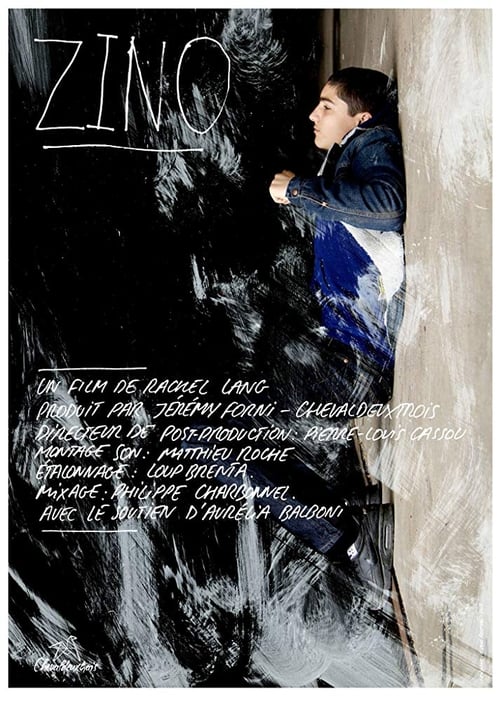 ZINO
UN FILM DE RACHEL LANG
PRODUIT PAR JÉRÉMY FORNI - CHEVALDEUXTROIS
DIRECTEUR DE POST-PRODUCTION: PIERRE-LOUIS CASSOU
MONTAGE SON: MATTHIEU ROCHE
ÉTALONNAGE: LOUP BRENTA.
MIXAGE: PHILIPPE CHARBONNEL.
AVEC LE SOUTIEN D'AURÉLIA BALBONI
Chevaldeuxtrois